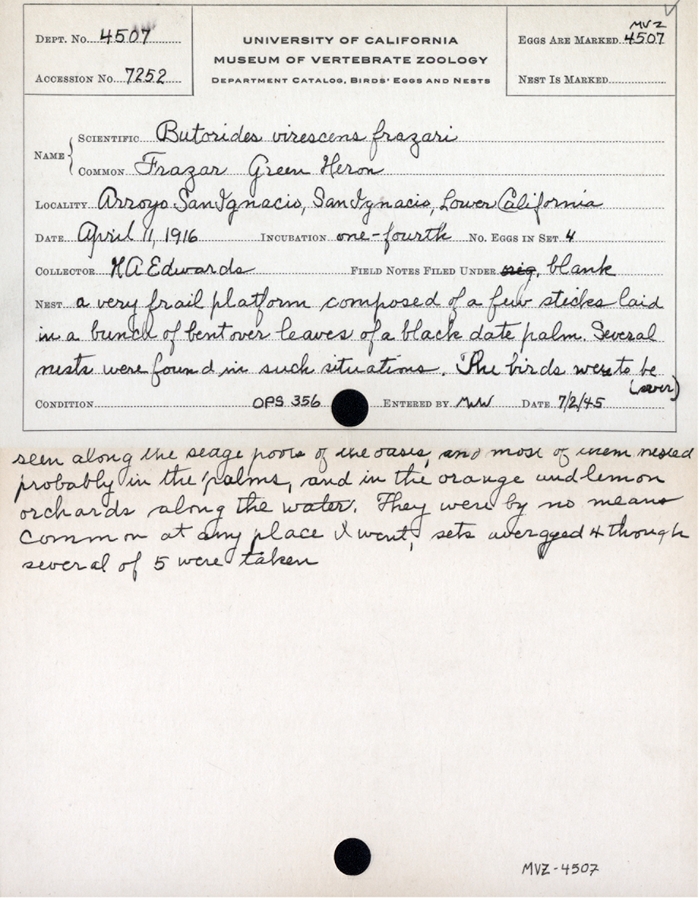 DEPT. NO. 4507
ACCESSION NO. 7252
UNIVERSITY OF CALIFORNIA
MUSEUM OF VERTEBRATE ZOOLOGY
DEPARTMENT CATALOG, BIRDS' EGGS AND NESTS
MVZ
EGGS ARE MARKED 4507
NEST IS MARKED
NAME
SCIENTIFIC Butorides virescens frazari
COMMON Frazar Green Heron
LOCALITY Arroyo San Ignacio, San Ignacio, Lower California
DATE April 11, 1916 INCUBATION one-fourth NO. EGGS IN SET 4
COLLECTOR HA Edwards FIELD NOTES FILED UNDER orig. blank
NEST a very frail platform composed of a few sticks laid
in a bunch of bent over leaves of a black date palm. Several
nests were found in such situations. The birds were to be
(over)
CONDITION OPS 356 ENTERED BY MW DATE 7/2/45
seen along the sedge pools of the oasis, and most of them nested
probably in the palms, and in the orange and lemon
orchards along the water. They were by no means
common at any place I went, sets avergyed 4 though
several of 5 were taken
MVZ-4507